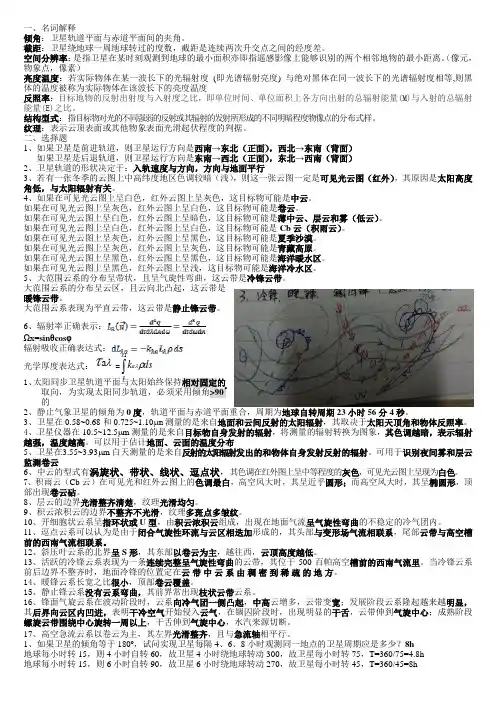 一、名词解释
倾角：卫星轨道平面与赤道平面间的夹角。
截距：卫星绕地球一周地球转过的度数，截距是连续两次升交点之间的经度差。
空间分辨率：是指卫星在某时刻观测到地球的最小面积亦即指遥感影像上能够识别的两个相邻地物的最小距离。（像元，物象点，像素）
亮度温度：若实际物体在某一波长下的光辐射度（即光谱辐射亮度）与绝对黑体在同一波长下的光谱辐射度相等,则黑体的温度被称为实际物体在该波长下的亮度温度
反照率：目标地物的反射出射度与入射度之比，即单位时间、单位面积上各方向出射的总辐射能量(M)与入射的总辐射能量(E)之比。
结构型式：指目标物对光的不同强弱的反射或其辐射的发射所形成的不同明暗程度物像点的分布式样。
纹理：表示云顶表面或其他物象表面光滑起伏程度的判据。
二、选择题
1、如果卫星是前进轨道，则卫星运行方向是西南→东北（正面），西北→东南（背面）
如果卫星是后退轨道，则卫星运行方向是东南→西北（正面），东北→西南（背面）
2、卫星轨道的形状决定于：入轨速度与方向，方向与地面平行
3、若有一张冬季的云图上中高纬度地区色调较暗（浅），则这一张云图一定是可见光云图（红外），其原因是太阳高度角低，与太阳辐射有关。
4、如果在可见光云图上呈白色，红外云图上呈灰色，这目标物可能是中云。
如果在可见光云图上呈灰色，红外云图上呈白色，这目标物可能是卷云。
如果在可见光云图上呈白色，红外云图上呈暗色，这目标物可能是薄中云、层云和雾（低云）。
如果在可见光云图上呈白色，红外云图上呈白色，这目标物可能是 Cb 云（积雨云）。
如果在可见光云图上呈灰色，红外云图上呈黑色，这目标物可能是夏季沙漠。
如果在可见光云图上呈灰色，红外云图上呈灰色，这目标物可能是青藏高原。
如果在可见光云图上呈黑色，红外云图上呈黑色，这目标物可能是海洋暖水区。
如果在可见光云图上呈黑色，红外云图上呈浅，这目标物可能是海洋冷水区。
5、大范围云系的分布呈带状，且呈气旋性弯曲，这云带是冷锋云带。
大范围云系的分布呈云区，且云向北凸起，这云带是
暖锋云带。
大范围云系表现为平直云带，这云带是静止锋云带。
6、辐射率正确表示：
Ωx=sinθcosφ
辐射吸收正确表达式：
光学厚度表达式：
1、太阳同步卫星轨道平面与太阳始终保持相对固定的取向，为实现太阳同步轨道，必须采用倾角>90°的
2、静止气象卫星的倾角为 0 度，轨道平面与赤道平面重合，周期为地球自转周期 23 小时 56 分 4 秒。
3、卫星在 0.58~0.68 和 0.725~1.10μm 测量的是来自地面和云间反射的太阳辐射，其取决于太阳天顶角和物体反照率。
4、卫星仪器在 10.5~12.5μm 测量的是来自目标物自身发射的辐射，将测量的辐射转换为图象，其色调越暗，表示辐射越强，温度越高。可以用于估计地面、云面的温度分布
5、卫星在3.55~3.93μm 白天测量的是来自反射的太阳辐射发出的和物体自身发射反射的辐射。可用于识别夜间雾和层云监测卷云
6、中云的型式有涡旋状、带状、线状、逗点状，其色调在红外图上呈中等程度的灰色，可见光云图上呈现为白色。
7、积雨云（Cb 云）在可见光和红外云图上的色调最白，高空风力大时，其呈近乎圆形；而高空风大时，其呈椭圆形，顶部出现卷云砧。
8、层云的边界光滑整齐清楚，纹理光滑均匀。
9、积云浓积云的边界不整齐不光滑，纹理多斑点多皱纹。
10、开细胞状云系呈指环状或 U 型，由积云浓积云组成，出现在地面气流呈气旋性弯曲的不稳定的冷气团内。
11、逗点云系可以认为是由于闭合气旋性环流与云区相迭加形成的，其头部与变形场气流相联系，尾部云带与高空槽前的西南气流相联系。
12、斜压叶云系的北界呈 S 形，其东部以卷云为主，越往西，云顶高度越低。
13、活跃的冷锋云系表现为一条连续完整呈气旋性弯曲的云带，其位于 500 百帕高空槽前的西南气流里，当冷锋云系前后边界不整齐时，地面冷锋的位置定在云带中云系由稠密到稀疏的地方。
14、暖锋云系长宽之比很小，顶部卷云覆盖。
15、静止锋云系没有云系弯曲，其前界常出现枝状云带云系。
16、锋面气旋云系在波动阶段时，云系向冷气团一侧凸起，中高云增多，云带变宽；发展阶段云系隆起越来越明显，其后界向云区内凹进，表明干冷空气开始侵入云气，在锢囚阶段时，出现明显的干舌，云带伸到气旋中心；成熟阶段螺旋云带围绕中心旋转一周以上，干舌伸到气旋中心，水汽来源切断。
17、高空急流云系以卷云为主，其左界光滑整齐，且与急流轴相平行。
1、如果卫星的倾角等于 180°，试问实现卫星每隔 4、6、8 小时观测同一地点的卫星周期应是多少？8h
地球每小时转 15，则 4 小时自转 60，故卫星 4 小时绕地球转动 300，故卫星每小时转 75，T=360/75=4.8h
地球每小时转 15，则 6 小时自转 90，故卫星 6 小时绕地球转动 270，故卫星每小时转 45，T=360/45=8h